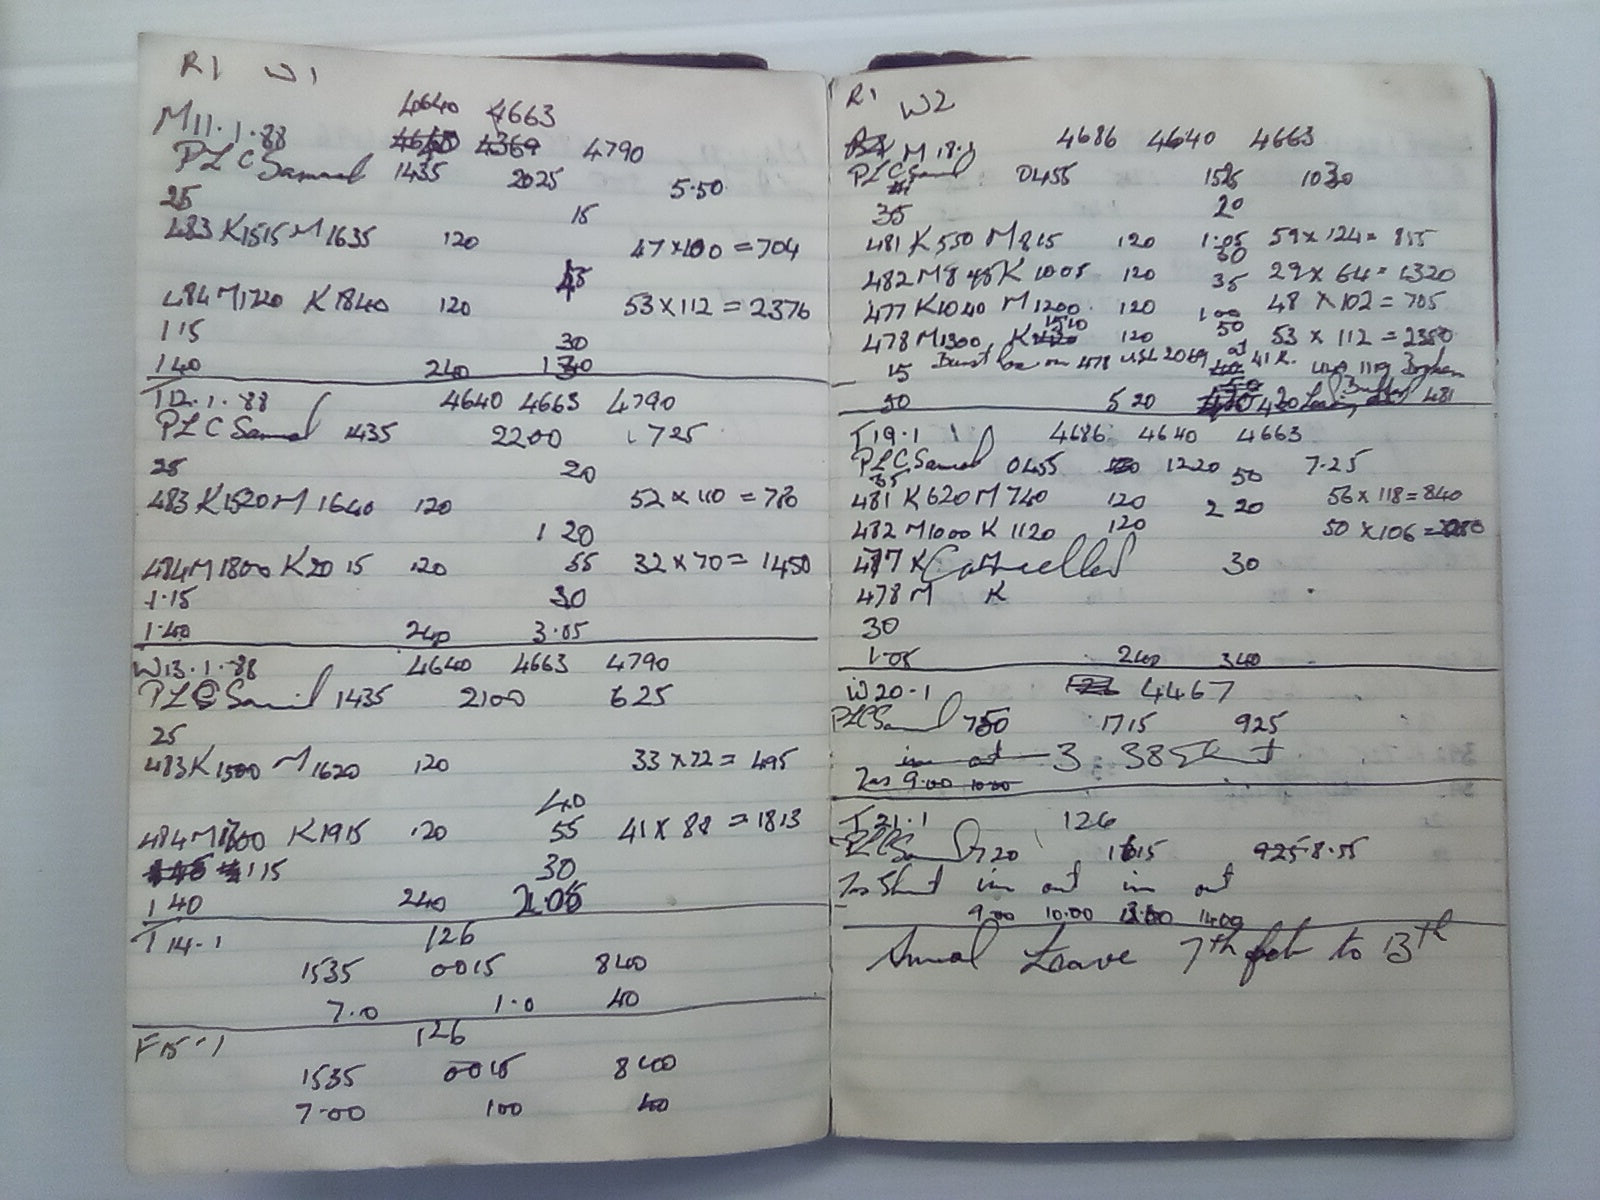 R1 W1
4640 4663
M 11.1.88 4660 4369 4790
PLC Samuel 1435 2025 5.50
25
15
483 K1515 M1635 120 47 x 100 = 704
45
484 M1720 K1840 120 53 x 112 = 2376
1 15 30
1 40 240 1 30
T 12.1.88 4640 4663 4790
PLC Samuel 1435 2200 725
25 20
483 K1520 M 1640 120 52 x 110 = 780
1 20
484 M 1800 K20 15 120 55 32 x 70 = 1450
1.15 30
1.40 240 3.05
W13.1.88 4640 4663 4790
PLC Samuel 1435 2100 625
25
483 K1500 M1620 120 33 x 72 = 495
40
484 M1800 K1915 120 55 41 x 88 = 1813
1 15 30
1 40 240 2.05
T 14.1 126
1535 0015 840
7.0 1.0 40
F15.1 126
1535 0015 840
7.00 100 40
R1 W2
M 18.1 4686 4640 4663
PLC Samuel 0455 1525 1030
35 20
481 K 550 M 815 120 1.05 59 x 124 = 855
30
482 M 8 45 K 1005 120 35 29 x 64 = 1320
477 K1040 M1200 120 1 00 48 x 102 = 705
1510
478 M1300 K 120 50 53 x 112 = 2380
15 on 478 2069 at 41 K.
30 5 20 4 20 481
T 19.1 4686 4640 4663
PLC Samuel 0455 1220 7.25
35 50
481 K 620 M 740 120 2 20 56 x 118 = 840
482 M1000 K 1120 120 50 x 106 =
477 K Cancelled M 30
478 M K
30
1.05 240 340
W 20.1 4467
PLC Samuel 750 1715 925
in out 3 38 Shunt
Tas 9.00 10.00
T 21.1 126
PLC Samuel 720 1615 925 8.55
Tas Shunt in out in out
9.00 10.00 13.00 1400
Annual Leave 7th feb to 13th